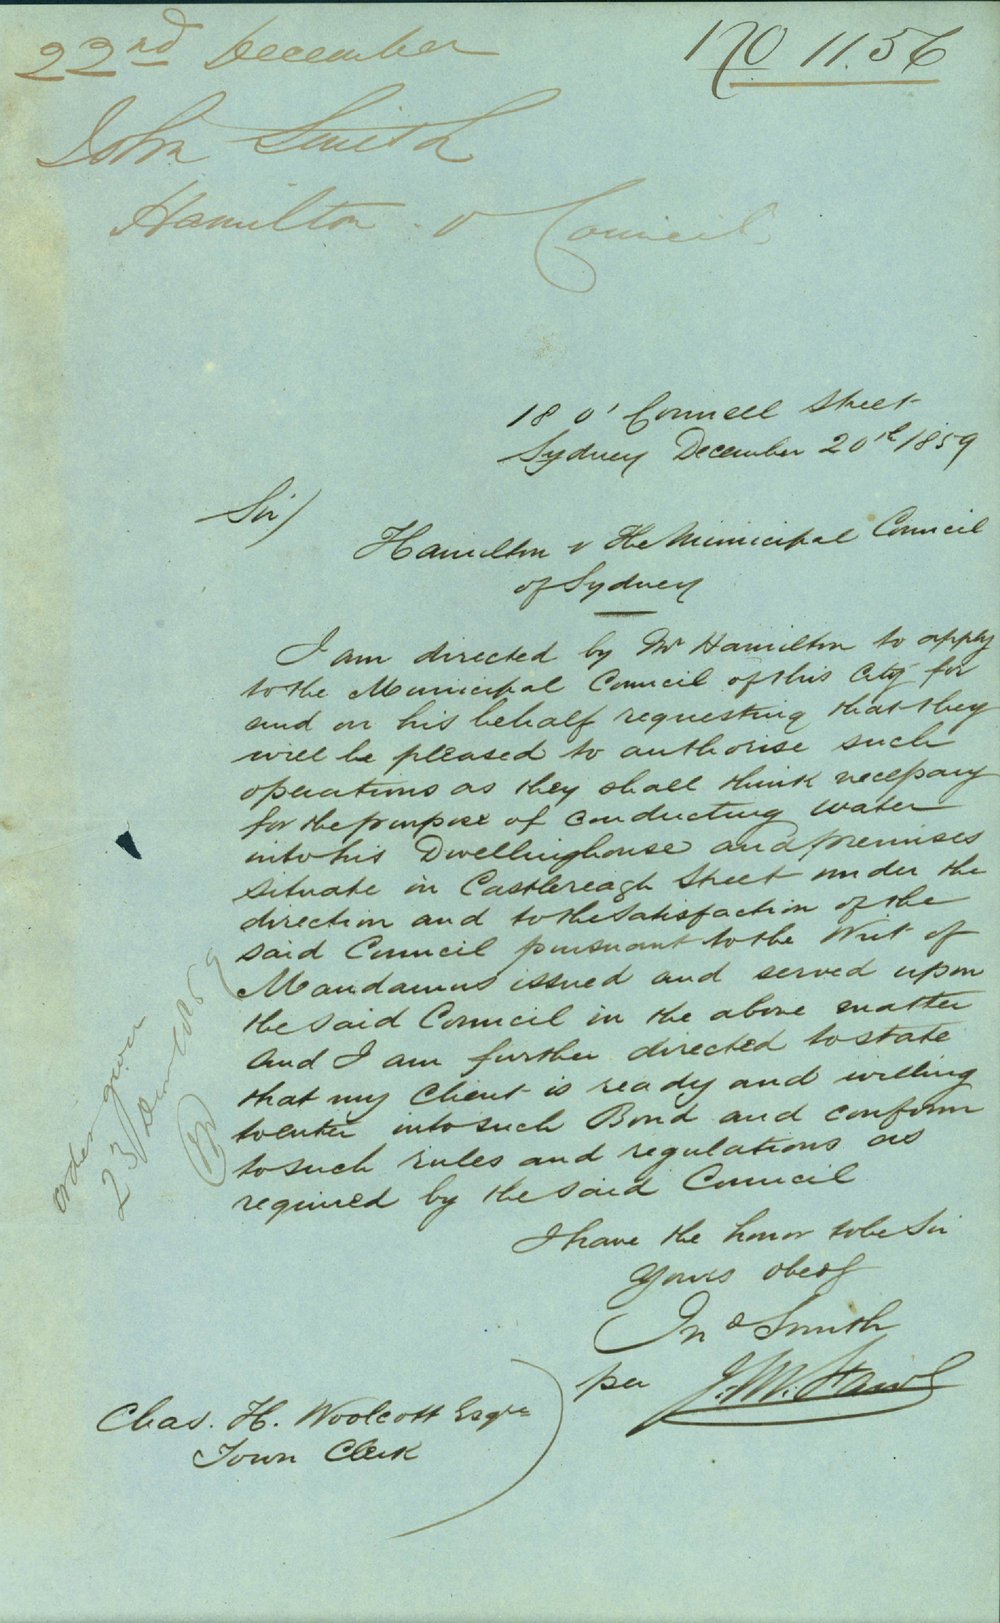 22nd December
No 1156
John Smith
Hamilton v Council
18 O'Connell Street
Sydney December 20th 1859
Sir/
Hamilton v The Municipal Council
of Sydney
I am directed by Mr Hamilton to apply
to the Municipal Council of this City for
and on his behalf requesting that they
will be pleased to authorise such
operations as they shall think necessary
for the purpose of conducting water
into his Dwellinghouse and premises
situate in Castlereagh Street under the
direction and to the satisfaction of the
said Council pursuant to the Writ of
Mandamus issued and served upon
the said Council in the above matter
And I am further directed to state
that my Client is ready and willing
to enter into such Bond and conform
to such rules and regulations as
required by the said Council
I have the honor to be Sir
Yours obedt
Jno Smith
per J. W.
Chas. H. Woolcott Esqre
Town Clerk
order given
23